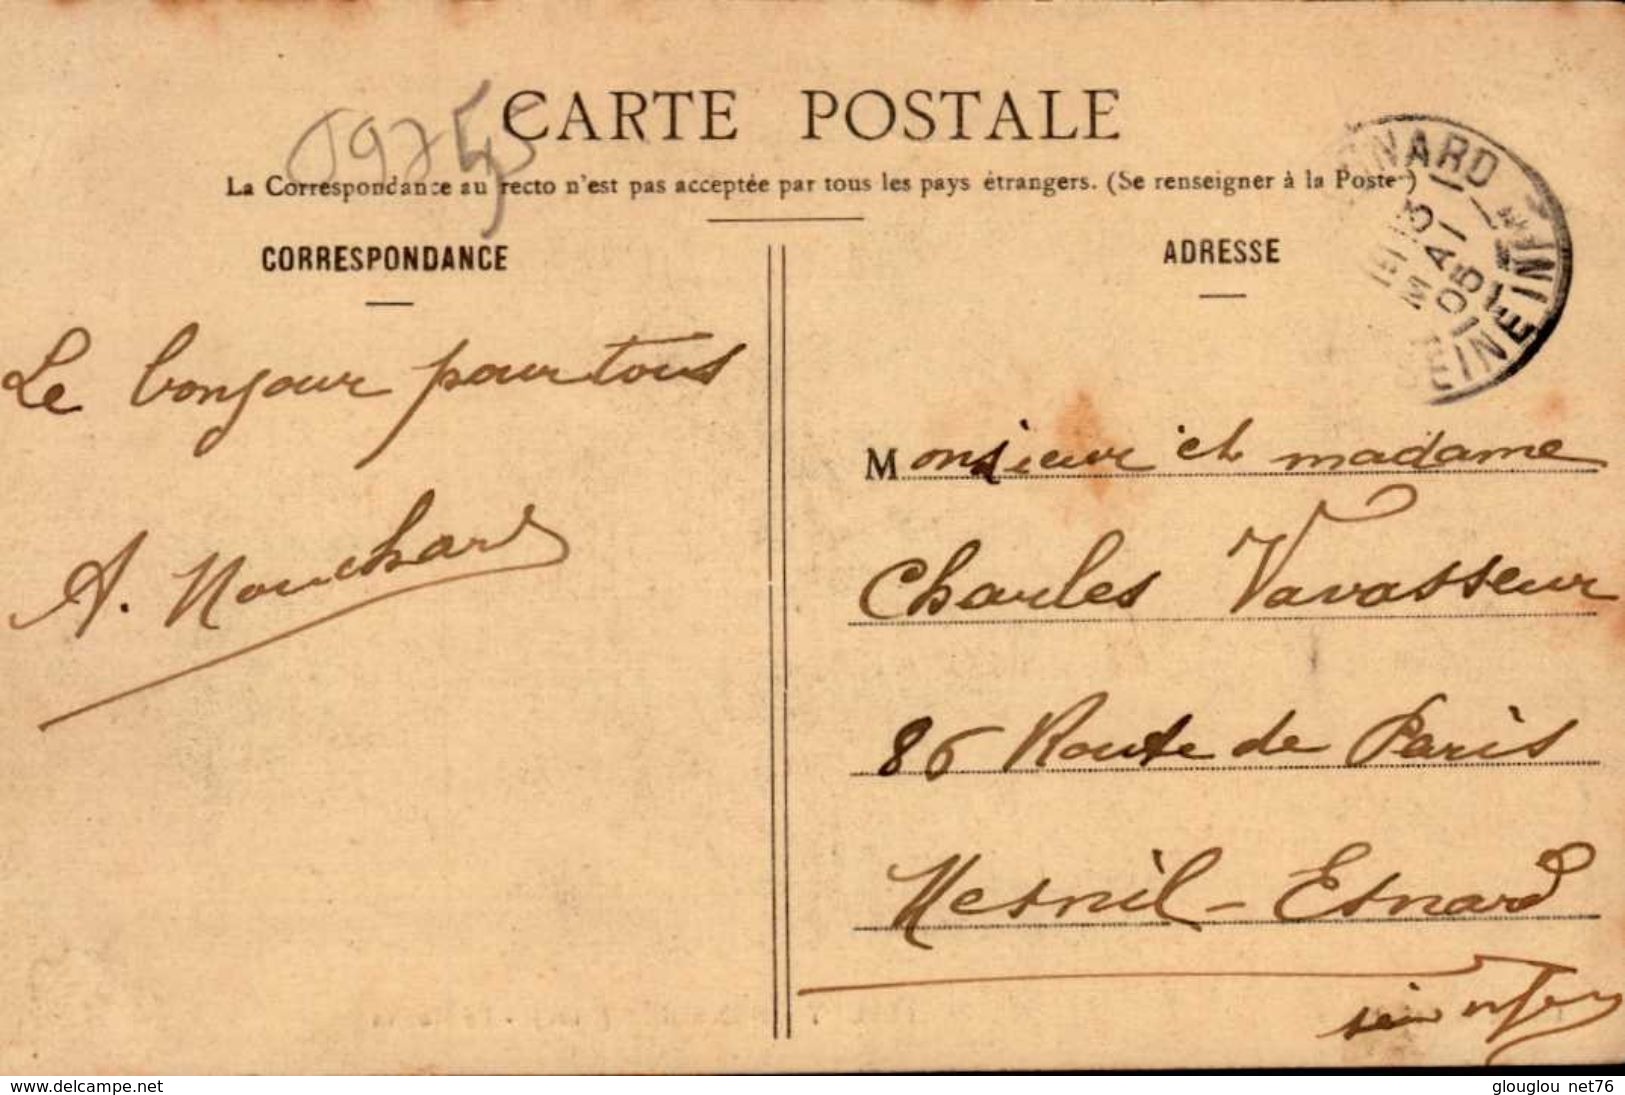 CARTE POSTALE
La Correspondance au recto n'est pas acceptée par tous les pays étrangers. (Se renseigner à la Poste)
CORRESPONDANCE
Le bonjour pour tous
A. Nouchard
ADRESSE
NARD
13
MAI
05
SEINE INF
Monsieur et madame
Charles Vavasseur
86 Route de Paris
Mesnil-Esnard
www.delcampe.net
glouglou net76